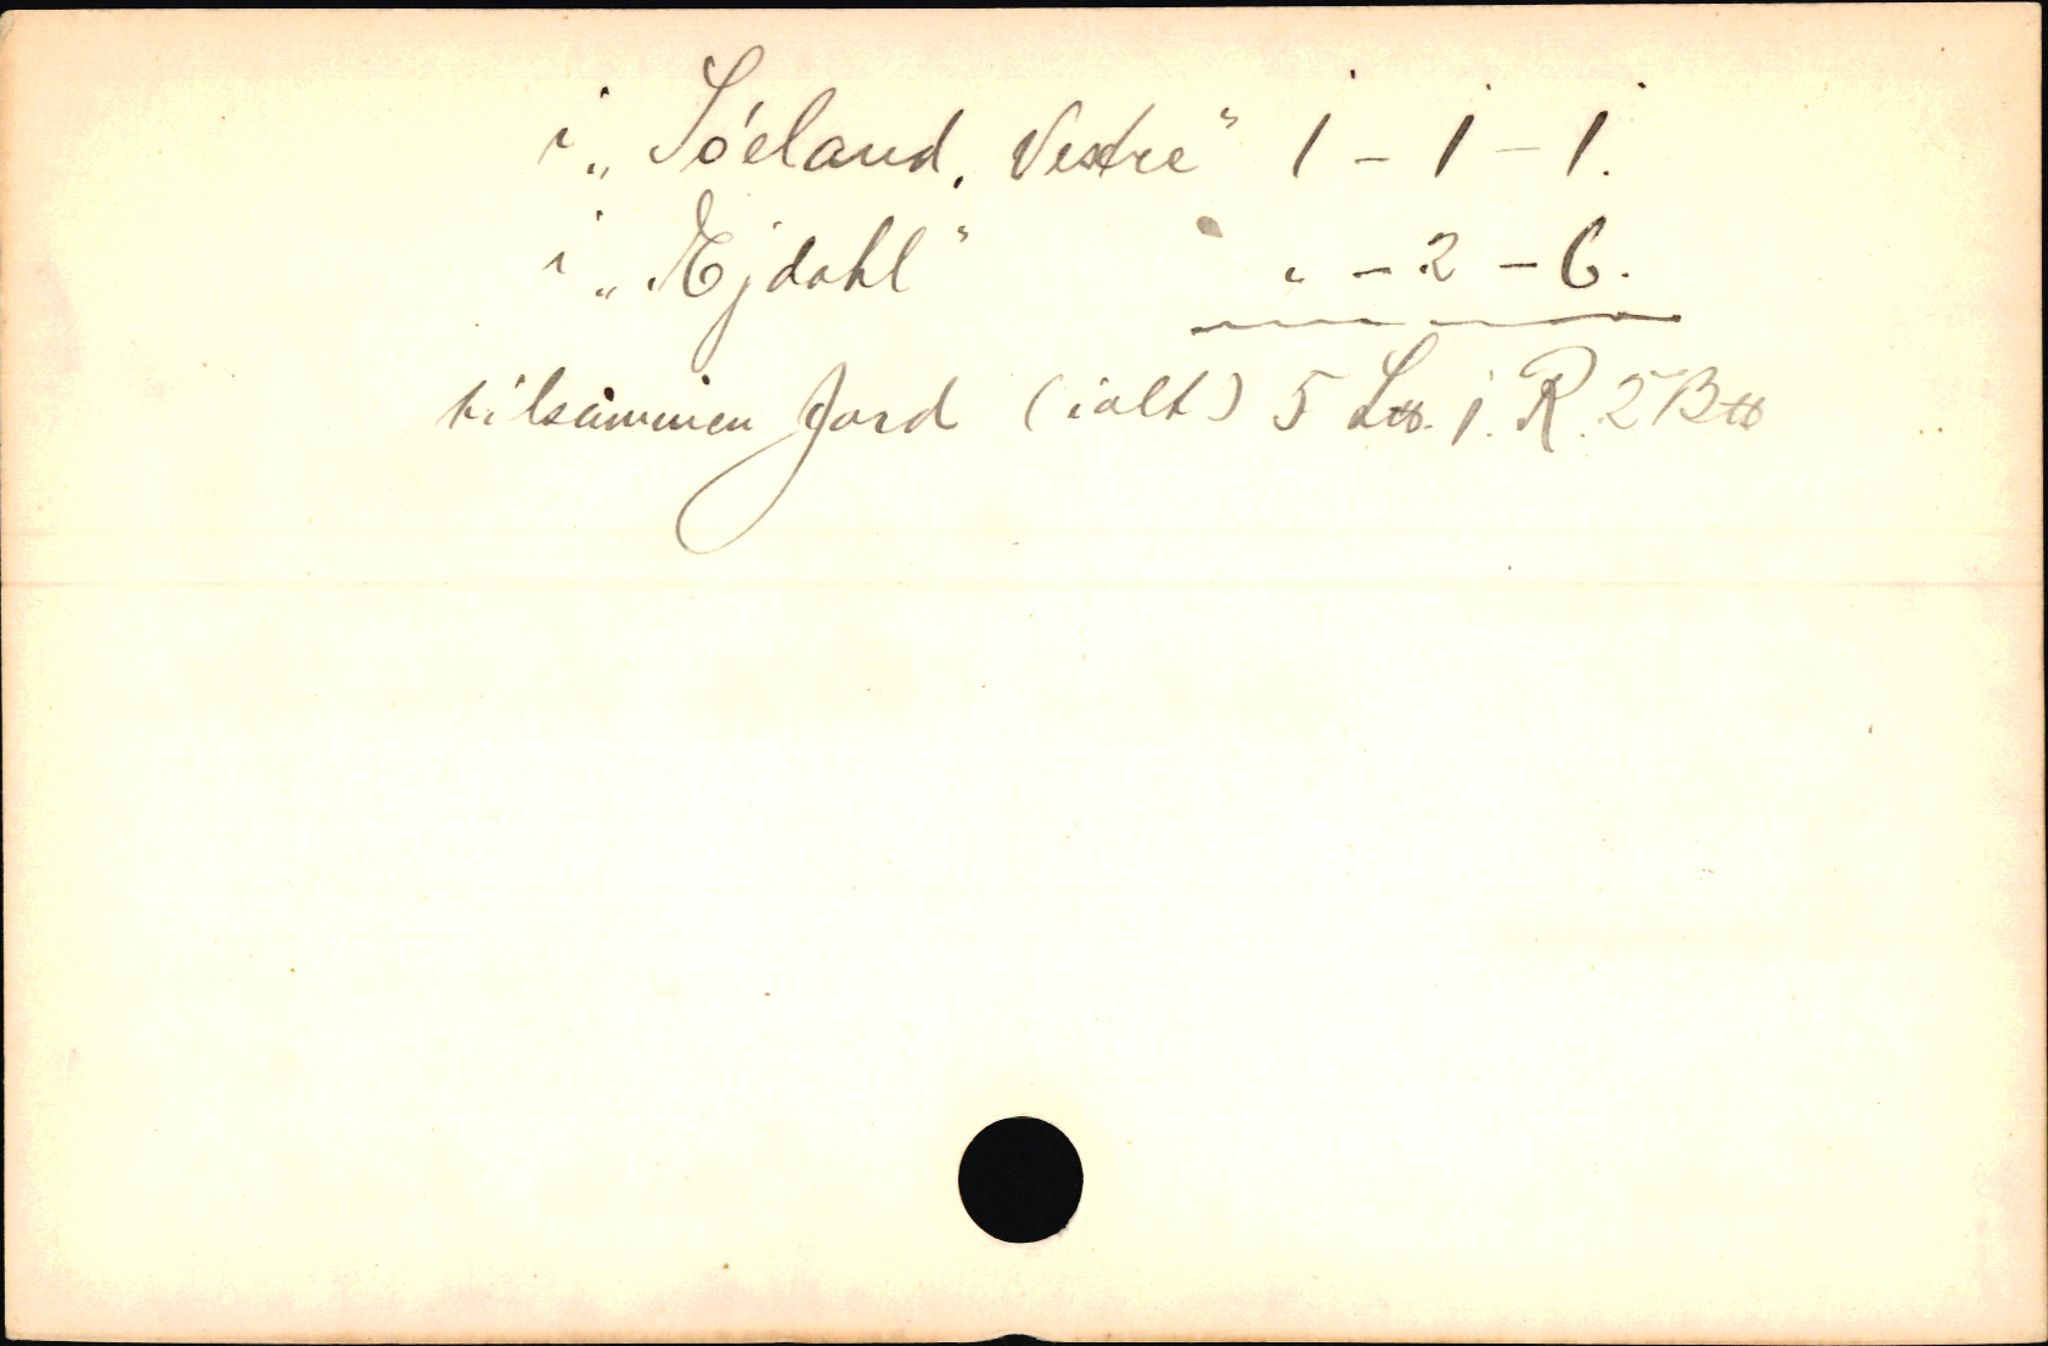 i „Sóeland, Vestre“ 1 - 1 - 1.
i „Ejdahl“ „ - 2 - 6.
tilsammen Jord (ialt) 5 L℔. 1. R. 2 B℔